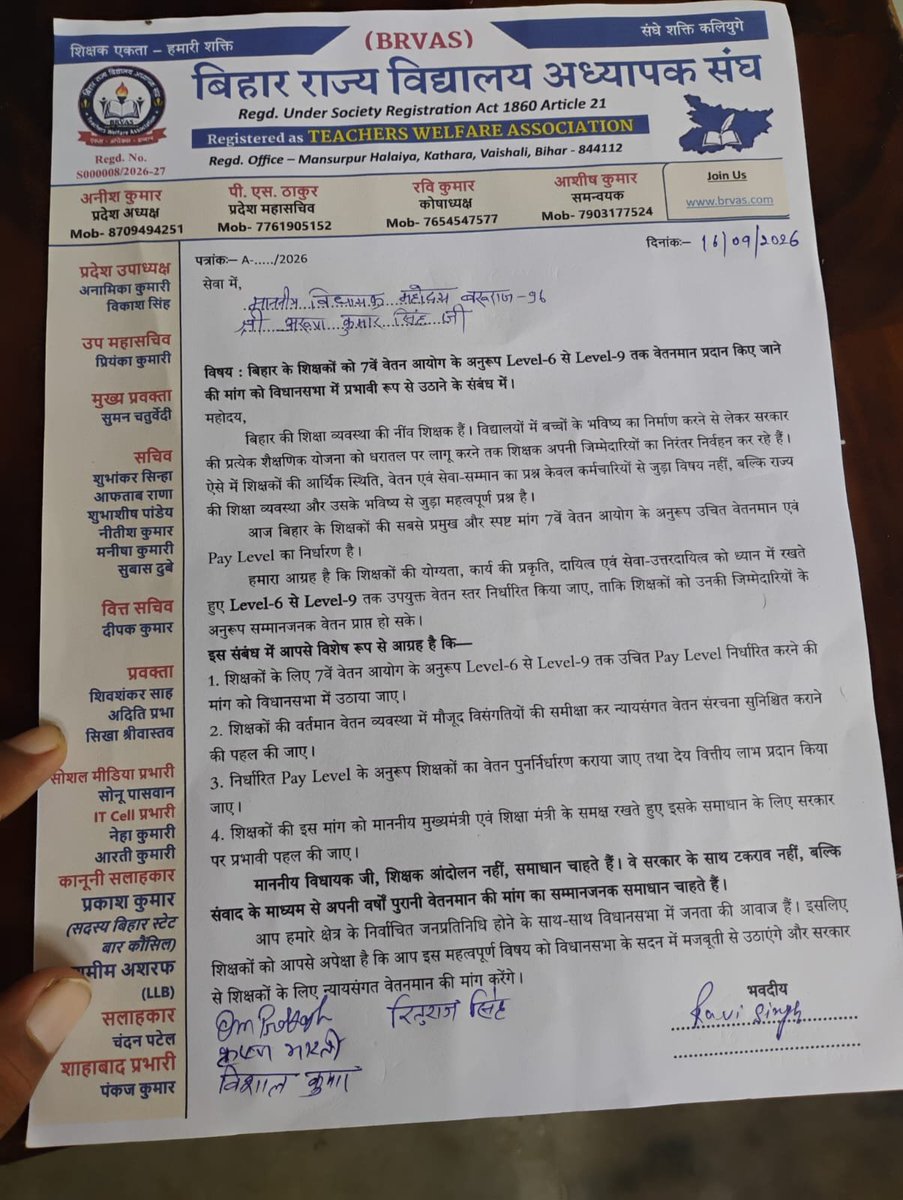 शिक्षक एकता – हमारी शक्ति
(BRVAS)
संघे शक्ति कलियुगे
बिहार राज्य विद्यालय अध्यापक संघ
Regd. Under Society Registration Act 1860 Article 21
Registered as TEACHERS WELFARE ASSOCIATION
Regd. Office – Mansurpur Halaiya, Kathara, Vaishali, Bihar - 844112
BRVAS
Teachers Welfare Association
Regd. No.
S000008/2026-27
अनीश कुमार
प्रदेश अध्यक्ष
Mob- 8709494251
पी. एस. ठाकुर
प्रदेश महासचिव
Mob- 7761905152
रवि कुमार
कोषाध्यक्ष
Mob- 7654547577
आशीष कुमार
समन्वयक
Mob- 7903177524
Join Us
www.brvas.com
प्रदेश उपाध्यक्ष
अनामिका कुमारी
विकास सिंह
उप महासचिव
प्रियंका कुमारी
मुख्य प्रवक्ता
सुमन चतुर्वेदी
सचिव
शुभांकर सिन्हा
आफताब राणा
शुभाशीष पांडेय
नीतीश कुमार
मनीषा कुमारी
सुबास दुबे
वित्त सचिव
दीपक कुमार
प्रवक्ता
शिवशंकर साह
अदिति प्रभा
सिखा श्रीवास्तव
सोशल मीडिया प्रभारी
सोनू पासवान
IT Cell प्रभारी
नेहा कुमारी
आरती कुमारी
कानूनी सलाहकार
प्रकाश कुमार
(सदस्य बिहार स्टेट
बार कौंसिल)
अशरफ
(LLB)
सलाहकार
चंदन पटेल
शाहाबाद प्रभारी
पंकज कुमार
पत्रांकः– A-...../2026
दिनांकः– 16/09/2026
सेवा में,
माननीय विधायक महोदय बरूराज-96
श्री अरुण कुमार सिंह जी
विषय : बिहार के शिक्षकों को 7वें वेतन आयोग के अनुरूप Level-6 से Level-9 तक वेतनमान प्रदान किए जाने
की मांग को विधानसभा में प्रभावी रूप से उठाने के संबंध में।
महोदय,
बिहार की शिक्षा व्यवस्था की नींव शिक्षक हैं। विद्यालयों में बच्चों के भविष्य का निर्माण करने से लेकर सरकार
की प्रत्येक शैक्षणिक योजना को धरातल पर लागू करने तक शिक्षक अपनी जिम्मेदारियों का निरंतर निर्वहन कर रहे हैं।
ऐसे में शिक्षकों की आर्थिक स्थिति, वेतन एवं सेवा-सम्मान का प्रश्न केवल कर्मचारियों से जुड़ा विषय नहीं, बल्कि राज्य
की शिक्षा व्यवस्था और उसके भविष्य से जुड़ा महत्वपूर्ण प्रश्न है।
आज बिहार के शिक्षकों की सबसे प्रमुख और स्पष्ट मांग 7वें वेतन आयोग के अनुरूप उचित वेतनमान एवं
Pay Level का निर्धारण है।
हमारा आग्रह है कि शिक्षकों की योग्यता, कार्य की प्रकृति, दायित्व एवं सेवा-उत्तरदायित्व को ध्यान में रखते
हुए Level-6 से Level-9 तक उपयुक्त वेतन स्तर निर्धारित किया जाए, ताकि शिक्षकों को उनकी जिम्मेदारियों के
अनुरूप सम्मानजनक वेतन प्राप्त हो सके।
इस संबंध में आपसे विशेष रूप से आग्रह है कि—
1. शिक्षकों के लिए 7वें वेतन आयोग के अनुरूप Level-6 से Level-9 तक उचित Pay Level निर्धारित करने की
मांग को विधानसभा में उठाया जाए।
2. शिक्षकों की वर्तमान वेतन व्यवस्था में मौजूद विसंगतियों की समीक्षा कर न्यायसंगत वेतन संरचना सुनिश्चित कराने
की पहल की जाए।
3. निर्धारित Pay Level के अनुरूप शिक्षकों का वेतन पुनर्निर्धारण कराया जाए तथा देय वित्तीय लाभ प्रदान किया
जाए।
4. शिक्षकों की इस मांग को माननीय मुख्यमंत्री एवं शिक्षा मंत्री के समक्ष रखते हुए इसके समाधान के लिए सरकार
पर प्रभावी पहल की जाए।
माननीय विधायक जी, शिक्षक आंदोलन नहीं, समाधान चाहते हैं। वे सरकार के साथ टकराव नहीं, बल्कि
संवाद के माध्यम से अपनी वर्षों पुरानी वेतनमान की मांग का सम्मानजनक समाधान चाहते हैं।
आप हमारे क्षेत्र के निर्वाचित जनप्रतिनिधि होने के साथ-साथ विधानसभा में जनता की आवाज हैं। इसलिए
शिक्षकों को आपसे अपेक्षा है कि आप इस महत्वपूर्ण विषय को विधानसभा के सदन में मजबूती से उठाएंगे और सरकार
से शिक्षकों के लिए न्यायसंगत वेतनमान की मांग करेंगे।
भवदीय
Ravi Singh
रितुराज सिंह
विशाल कुमार